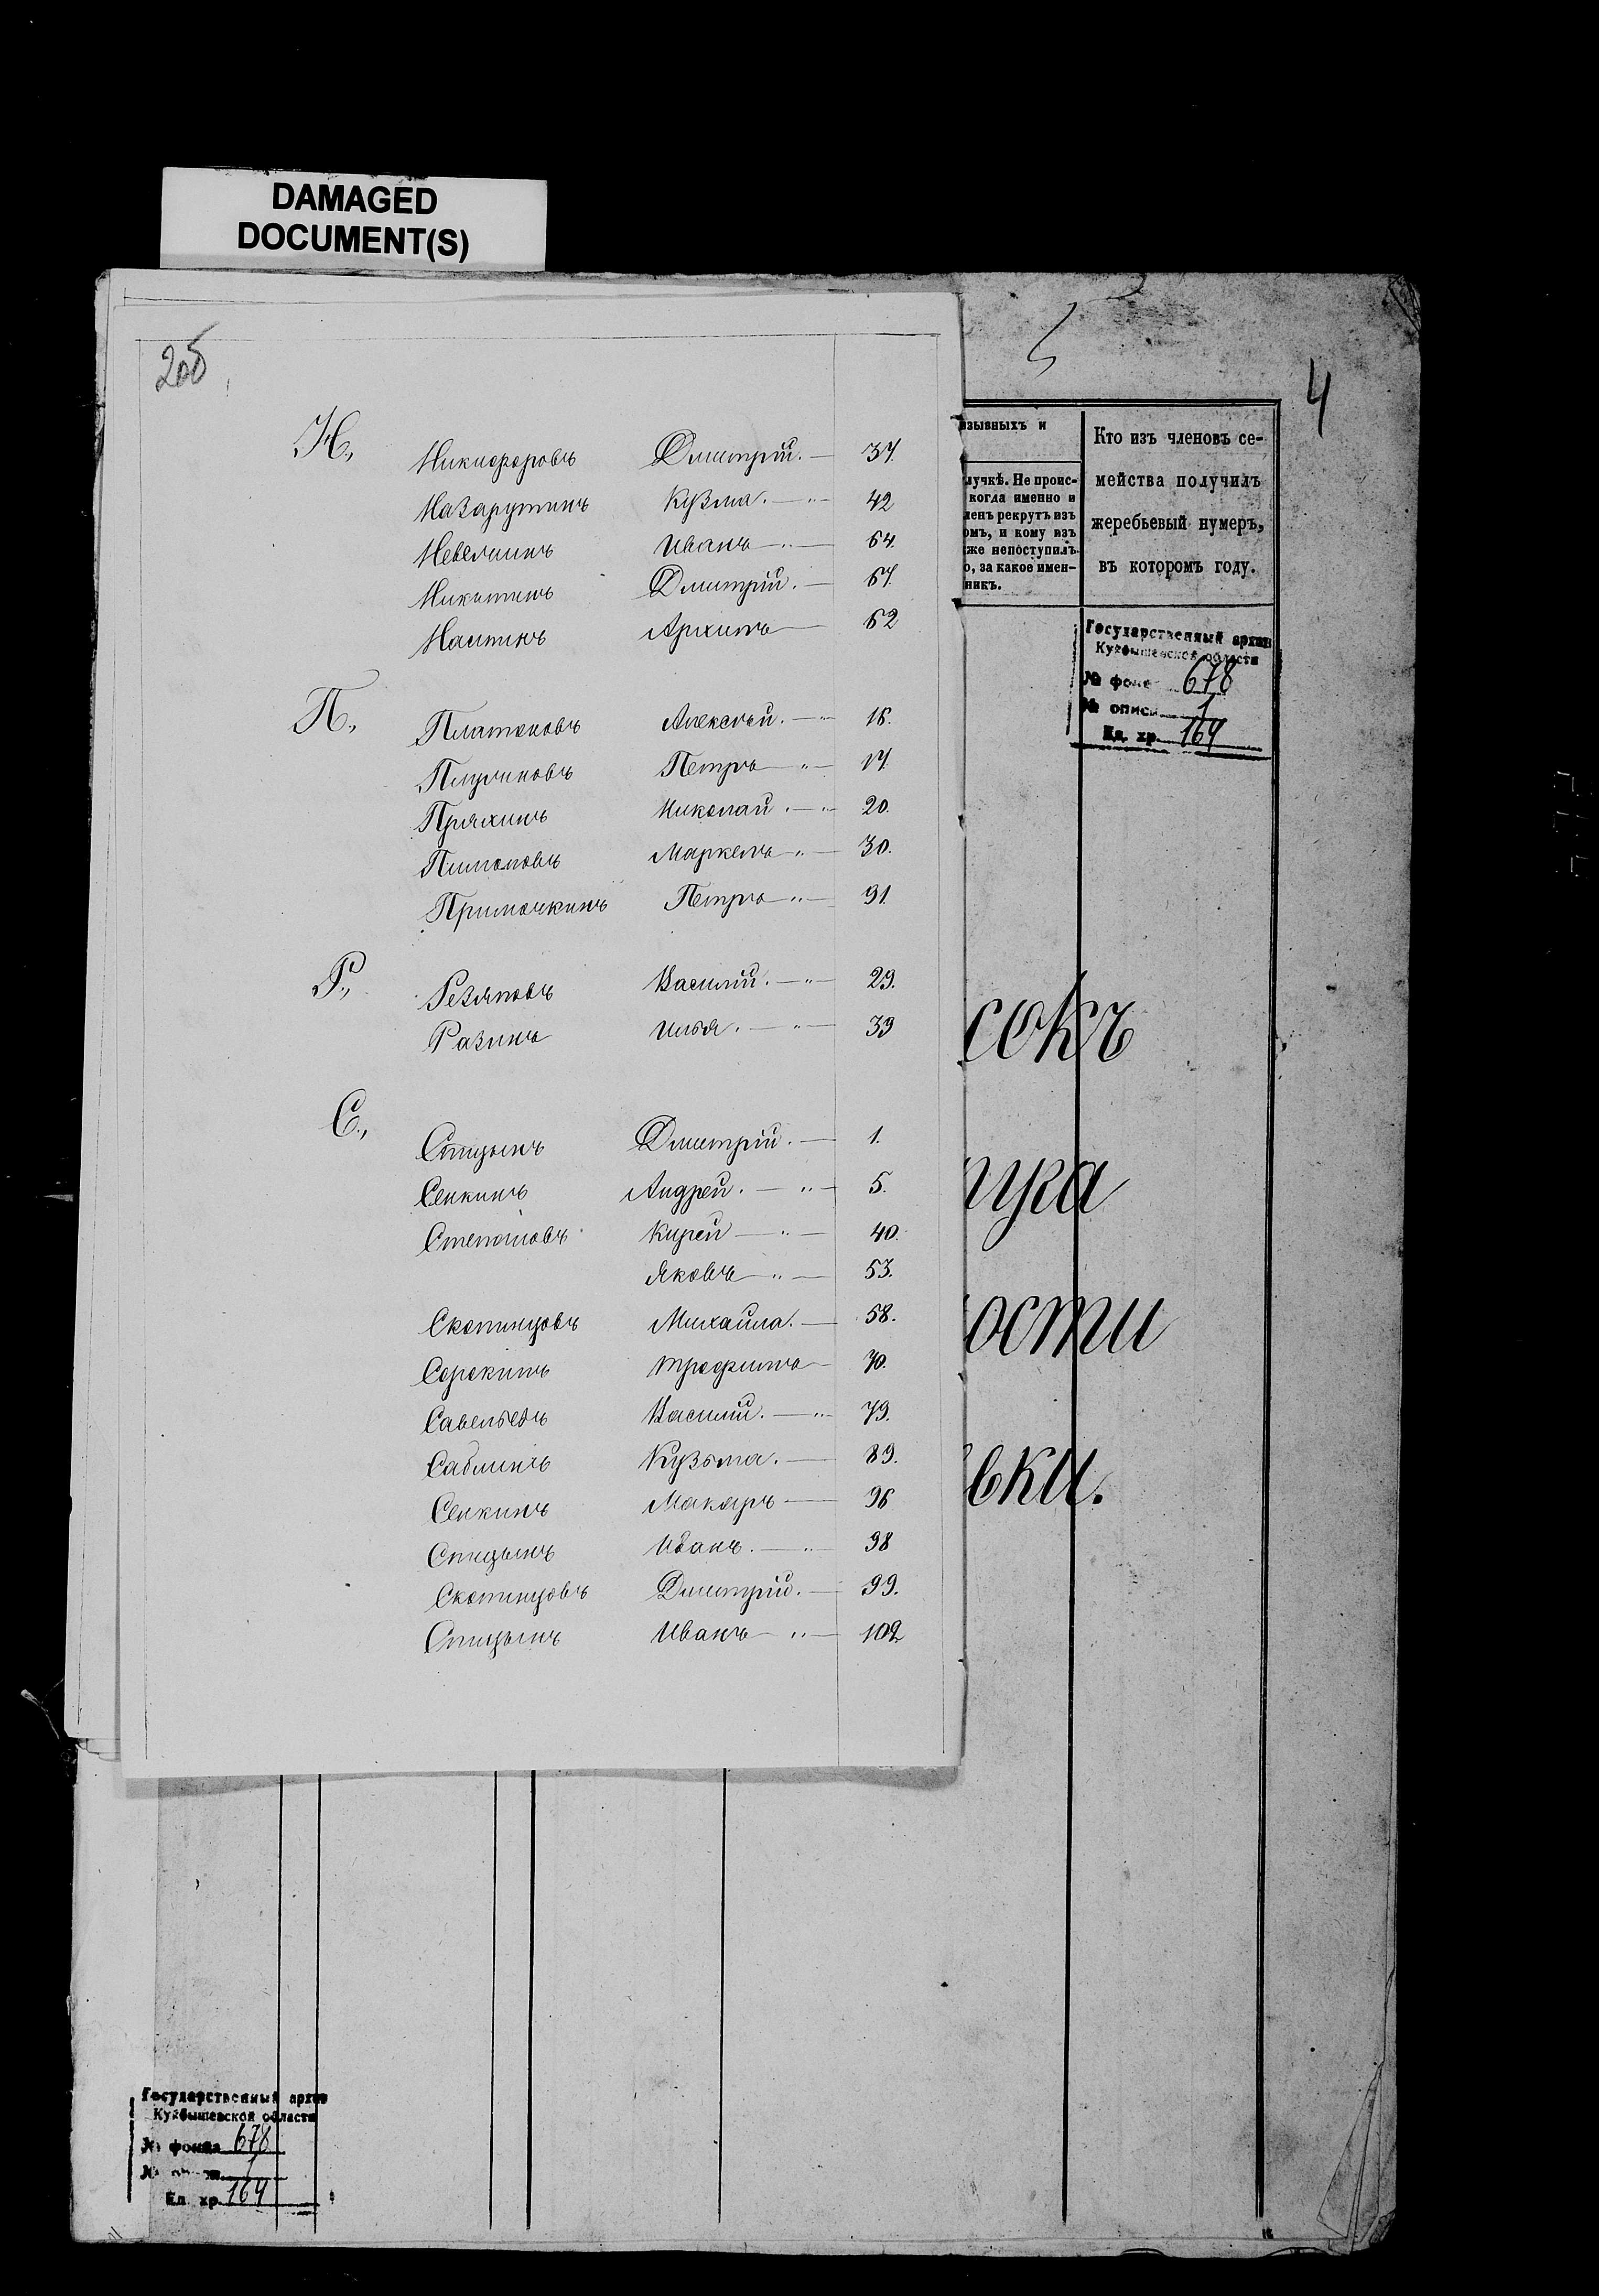 DAMAGED
DOCUMENT(S)
4
Н.,
Никифоровъ Дмитрій. — 37.
Назарушинъ Кузма. — „ — 42
Невелинъ Иванъ — „ — 64.
Никитинъ Дмитрій. — 67.
Архипъ — 62
П.,
Платоновъ Алексѣй. — „ — 16.
Петръ — „ — 17.
Пряхинъ Николай. — „ — 20.
Пимоновъ Маркелъ „ — 30.
Примочкинъ Петръ „ — 91.
Р.,
Резяповъ Василій. — „ — 29.
Разинъ Илья. — „ — 39
С.,
Спицынъ Дмитрій. — 1.
Сенкинъ Андрей. — „ — 5.
Степановъ Кирей — „ — 40.
Яковъ — „ — 53.
Скопинцовъ Михайла. — 58.
Сорокинъ Трофимъ — 70.
Савельевъ Василій. — „ — 79.
Саблинъ Кузьма. — 89.
Сенкинъ Макаръ — 96
Спицынъ Иванъ. — „ — 98
Скопинцовъ Дмитрій. — 99.
Спицынъ Иванъ — „ — 102
зывныхъ и
лучкѣ. Не проис-
когда именно и
ленъ рекрутъ изъ
омъ, и кому изъ
же непоступилъ
о, за какое имен-
никъ.
Кто изъ членовъ се-
мейства получилъ
жеребьевый нумеръ,
въ которомъ году.
Государственный архив
Куйбышевской области
№ фонд 678
№ описи 1
Ед. хр. 164
сокъ
ости
вки.
Государственный архив
Куйбышевской области
№ фонда 678
№ описи 1
Ед. хр. 164